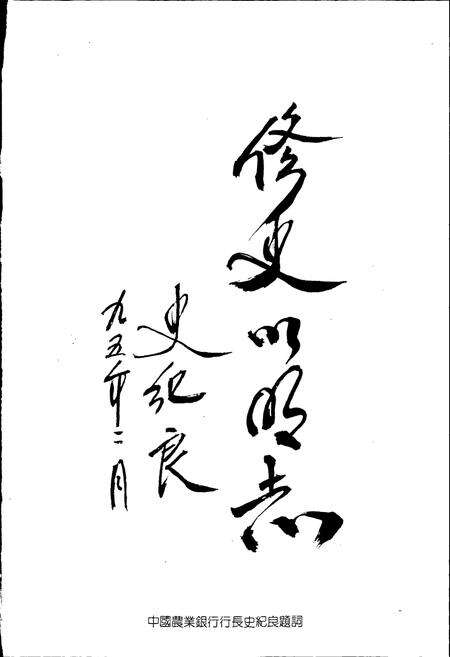 修史以明志
史纪良
九五年二月
中國農業銀行行長史紀良題詞